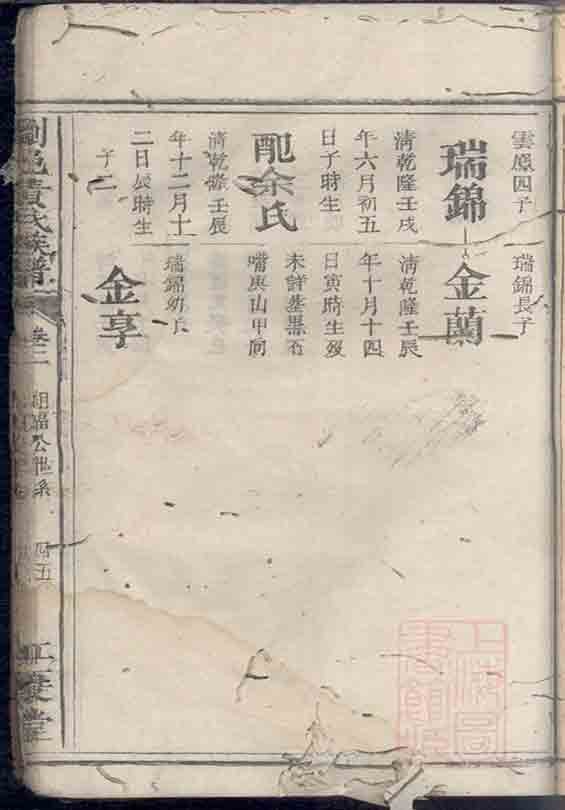 雲鳳四子
瑞錦
清乾隆壬戌
年六月初五
日子時生
配余氏
清乾隆壬辰
年十二月十
二日辰時生
子二
瑞錦長子
金蘭
清乾隆壬辰
年十月十四
日寅時生歿
未詳墓墨石
嘴庚山甲向
瑞錦幼子
金享
瀏邑黃氏族譜
卷二
四五
上海圖
書館藏